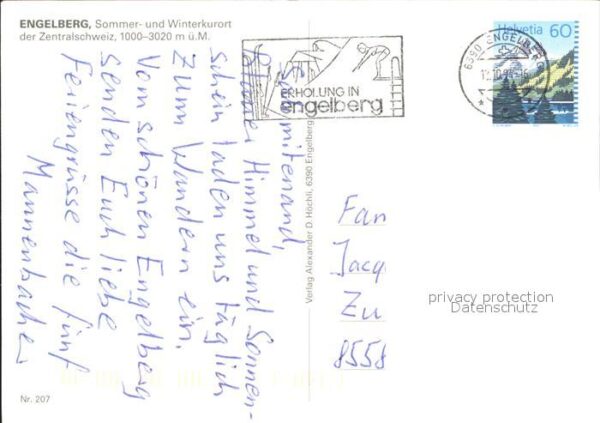 ENGELBERG, Sommer- und Winterkurort
der Zentralschweiz, 1000–3020 m ü.M.
Salü mitenand,
Blauer Himmel und Sonnen-
schein laden uns täglich
zum Wandern ein.
Vom schönen Engelberg
senden Euch liebe
Feriengrüsse die fünf
Mannenbacher
Nr. 207
Verlag Alexander D. Höchli, 6390 Engelberg
ERHOLUNG IN
engelberg
6390 ENGELBERG
Helvetia 60
Fam
Jacq
Zu
8558
privacy protection
Datenschutz